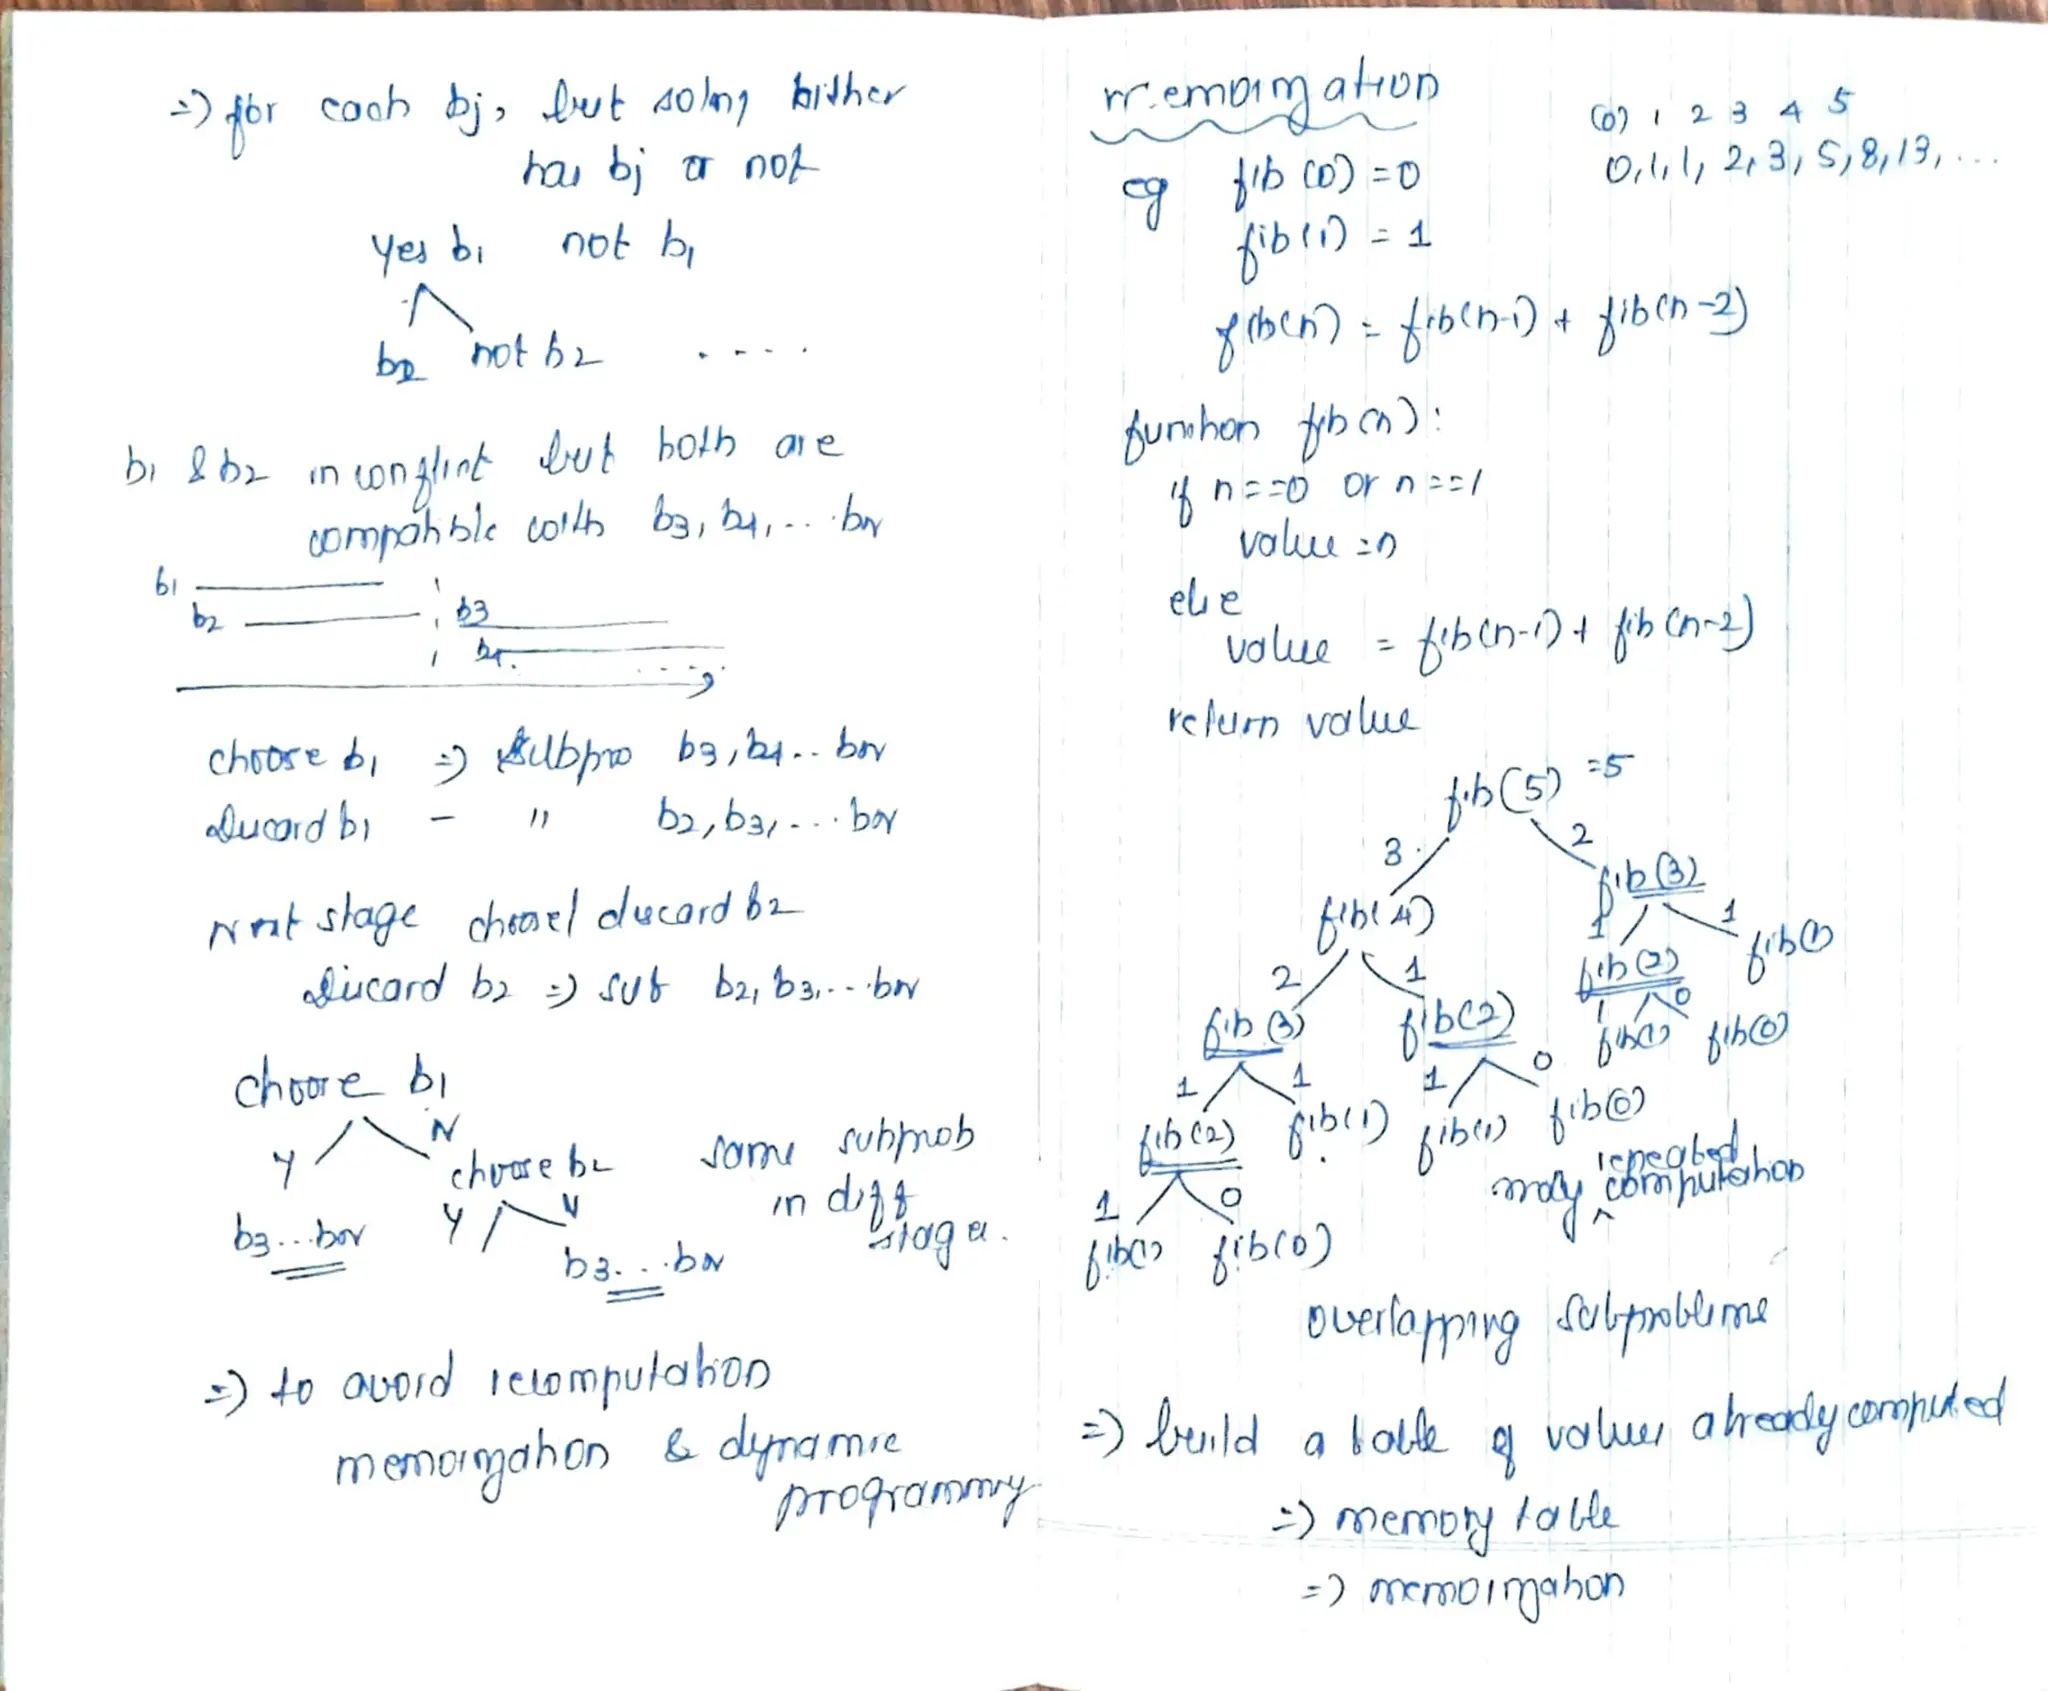 =) for each bj, but solnγ bither
has bj or not
yes b1 not b1
b2 not b2 ....
b1 & b2 in conflict but both are
compatible with b3, b4, ... bN
b1
b2 b3
b4. ....
choose b1 =) Subpro b3, b4.. bN
Discard b1 - " b2, b3, ... bN
Next stage choose/ discard b2
Discard b2 =) sub b2, b3, ... bN
choose b1
Y N
choose b2 same subprob
in diff
stages.
Y N
b3...bN
b3...bN
=) to avoid recomputation
memoization & dynamic
programming.
memoization
(0) 1 2 3 4 5
0, 1, 1, 2, 3, 5, 8, 13, ...
eg fib (0) = 0
fib (1) = 1
fib(n) = fib(n-1) + fib(n-2)
function fib(n):
if n==0 or n==1
value = n
else
value = fib(n-1) + fib(n-2)
return value
fib(5) =5
3 2
fib(4) fib(3)
2 1 1 1
fib(3) fib(2) fib(2) fib(1)
1 1 1 0 1 0
fib(2) fib(1) fib(1) fib(0) fib(1) fib(0)
1 0
fib(1) fib(0)
may repeated computation
overlapping subproblems
=) build a table of values already computed
=) memory table
=) memoization